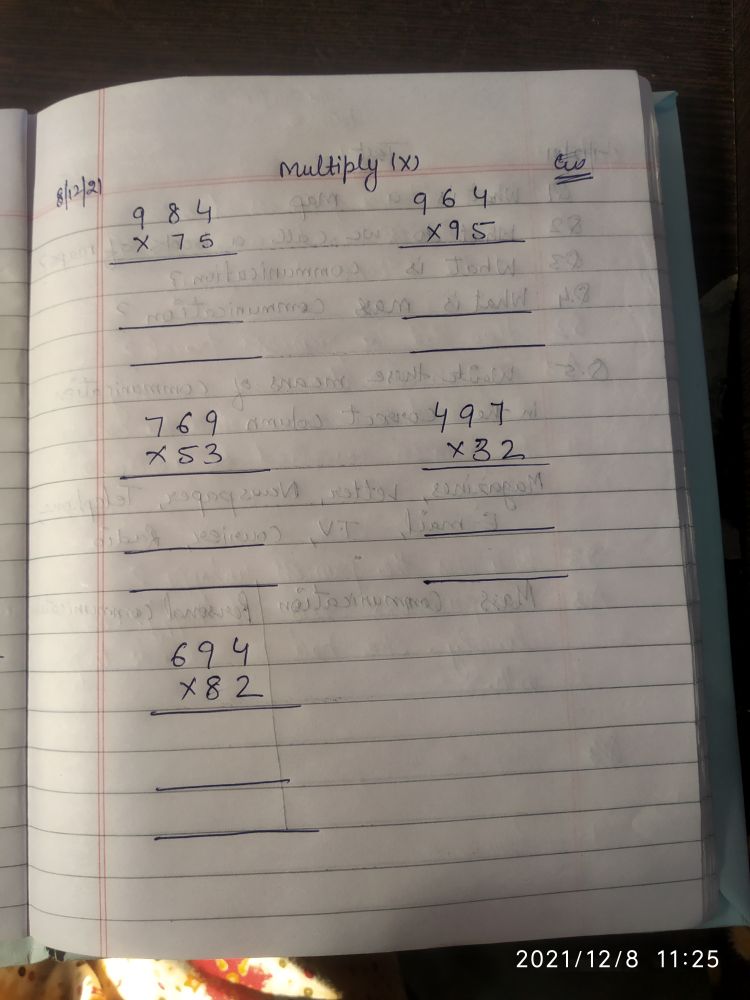 8/12/21 Multiply (X) Cw
984 964
×75 ×95
769 497
×53 ×32
694
×82
2021/12/8 11:25